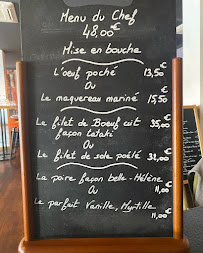 Menu du Chef
48,00€
Mise en bouche
L'oeuf poché 13,50€
Ou
Le maquereau mariné 15,50€
Le filet de Boeuf cuit 35,00€
façon tataki
Ou
Le filet de sole poêlé 32,00€
La poire façon belle-Hélène 11,00€
Ou
Le parfait Vanille, Myrtille 11,00€